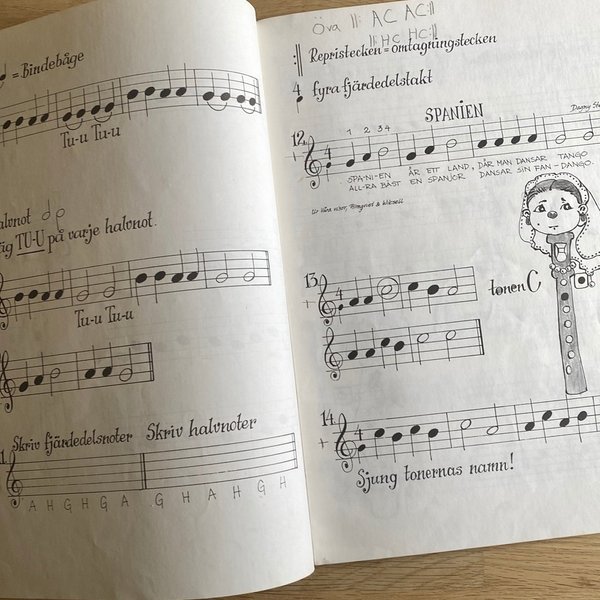 = Bindebåge
Tu-u Tu-u
halvnot
TU-U på varje halvnot.
Tu-u Tu-u
Skriv fjärdedelsnoter Skriv halvnoter
A H G H G A G H A H G H
Öva ||: AC AC :||
||: HC HC :||
Repristecken = omtagningstecken
4 fyra fjärdedelstakt
SPANIEN
12.
1 2 3 4
SPA-NI-EN ÄR ETT LAND, DÄR MAN DANSAR TANGO
ALL-RA BÄST EN SPANJOR DANSAR SIN FAN-DANGO.
Ur Våra visor,
13.
tonen C
14.
Sjung tonernas namn!